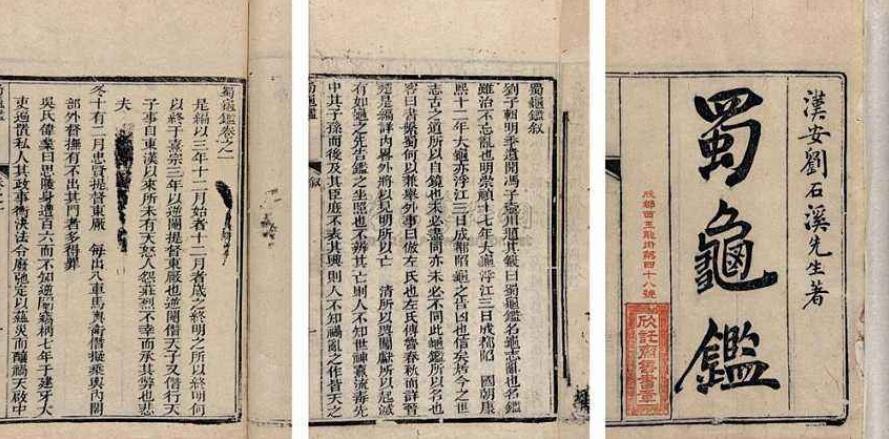 漢安劉石溪先生著
蜀龜鑑
成都西玉龍街第四十八號
欣託齋藏書章
蜀龜鑑叙
劉子輯明季遺聞馮子壺川題其籤曰蜀龜鑑名龜志亂也名鑑
雖治不忘亂也明崇禎十七年大龜浮江三日成都陷 國朝康
熙十二年大龜亦浮江三日成都陷龜之告凶也信矣居今之世
志古之道所以自鏡也未必盡同亦未必不同此龜鑑所以名也
客曰書紀蜀何以兼舉外事曰倣左氏也左氏傳魯春秋而詳晉
楚是編詳內畧外將以見明所以亡 清所以興闖獻所以起滅
有如龜之先告鑑之坐照也不辨其亡則人不知世神熹流毒先
中其子孫而後及其臣庶不表其興則人不知禍亂之作皆天之
叙
蜀龜鑑卷之一
是編以三年十二月始者十二月者歲之終明之所以終明何
以終于熹宗三年以逆閹提督東廠也逆閹僭天子又僭行天
子事自東漢以來所未有天怒人怨莊烈不幸而承其弊也悲
夫
冬十有二月忠賢提督東廠 每出入車馬輿衛僭擬乘輿內閣
部外督撫有不出其門者多得罪
吳氏偉業曰思陵身遭百六而不知逆閹竊柄七年于建牙大
吏遍置私人其政事衝決法令廢弛定以蘊災而釀禍天啟中